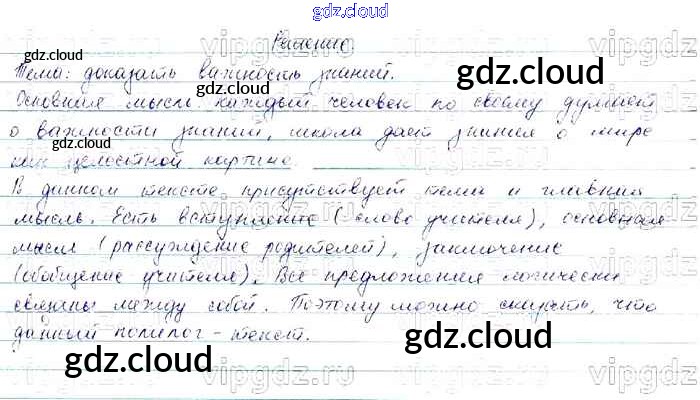 gdz.cloud
Решение
gdz.cloud
Тема: доказать важность знаний.
gdz.cloud
Основная мысль: каждый человек по своему думает
о важности знаний, школа дает знания о мире
gdz.cloud
как целостной картине.
gdz.cloud
В данном тексте присутствует тема и главная
мысль. Есть вступление (слово учителя), основная
gdz.cloud
gdz.cloud
мысль (рассуждение родителей), заключение
(обобщение учителя). Все предложения логически
gdz.cloud
связаны между собой. Поэтому можно сказать, что
данный полилог - текст.
gdz.cloud
gdz.cloud
vipgdz.ru